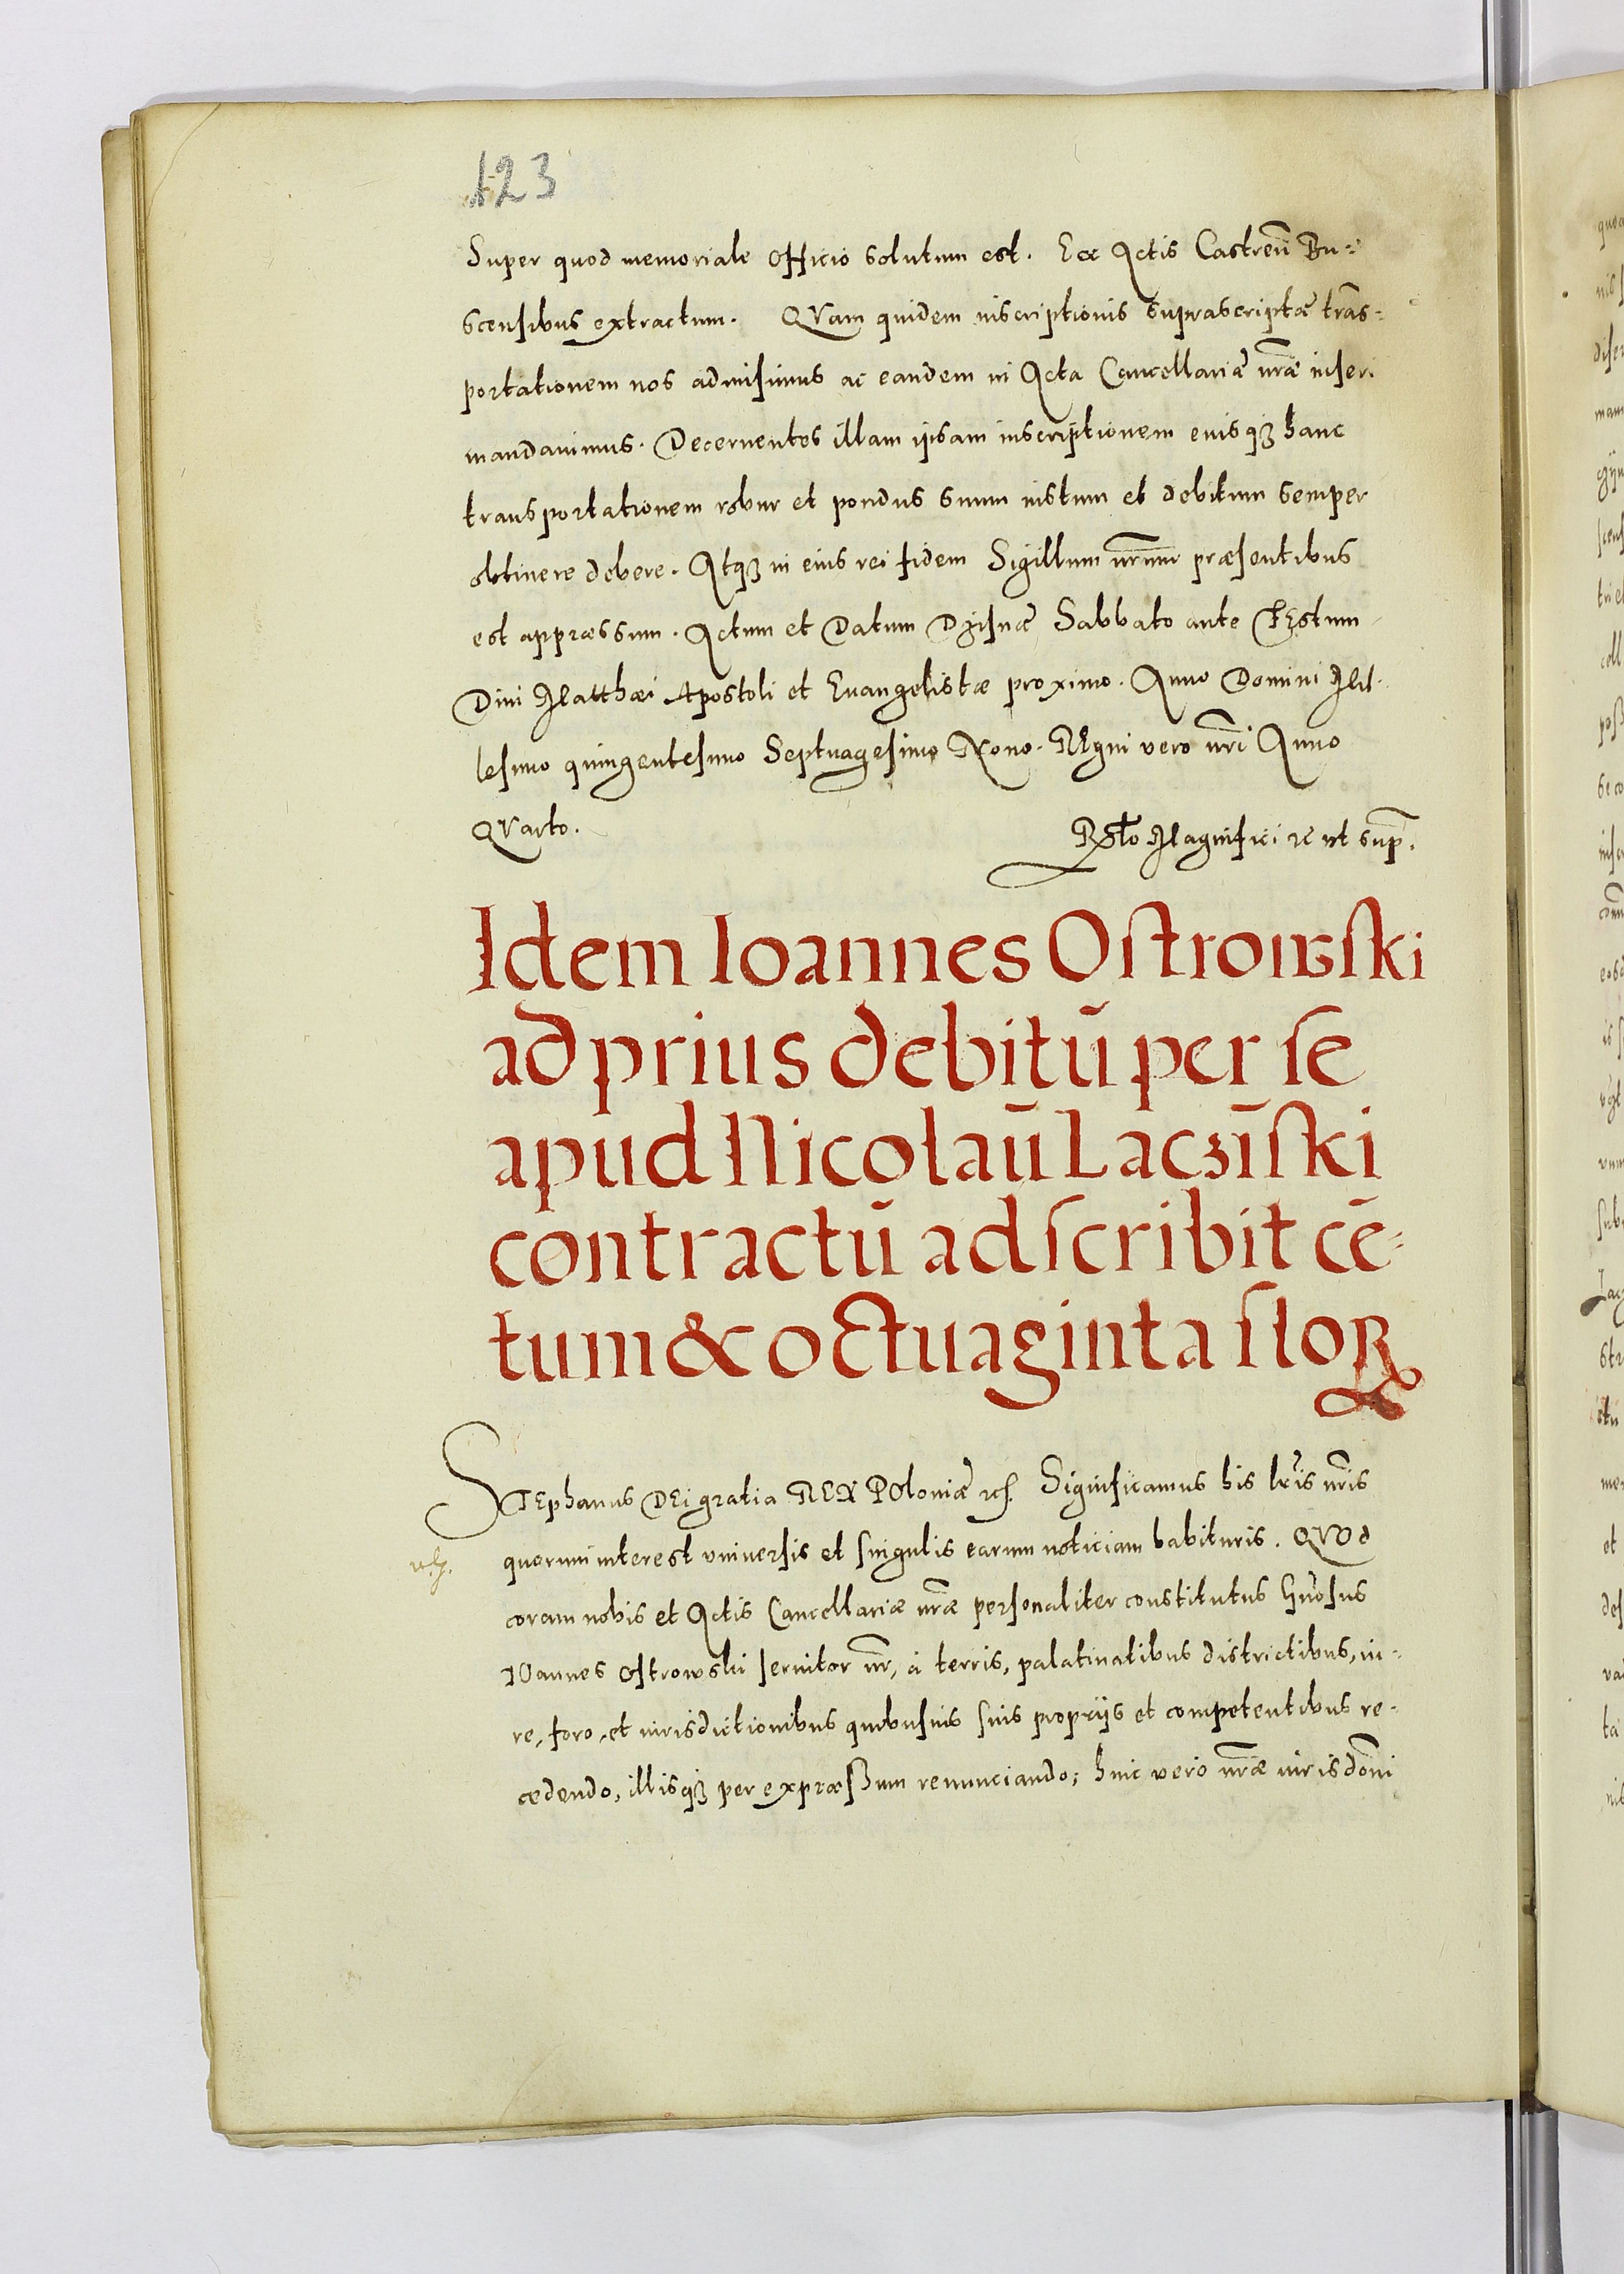 123
Super quod memoriale Officio solutum est. Ex Actis Castreñ Bu=
scensibus extractum. QVam quidem inscriptionis suprascriptæ trãs=
portationem nos admisimus ac eandem in Acta Cancellariæ nr̃æ inseri
mandauimus. Decernentes illam ipsam inscriptionem eiusqꝫ hanc
transportationem robur et pondus suum iustum et debitum semper
obtinere debere. Atqꝫ in eius rei fidem Sigillum nr̃um præsentibus
est appræssum. Actum et Datum Dzisnæ Sabbato ante FEstum
Diui Matthæi Apostoli et Euangelistæ proximo. Anno Domini Mil-
lesimo quingentesimo Septuagesimo Nono. REgni vero nr̃i Anno
QVarto.
Rᵉˡᵒ Magnifici ꝛc ut sup̃.
Idem Ioannes Oſtrowſki
ad prius debitũ per ſe
apud Nicolaũ Laczĩſki
contractũ adſcribit cẽ=
tum & octuaginta floꝝ
STEphanus DEi gratia REX POloniæ ꝛcꝭ. Significamus his lr̃is nr̃is
quorum interest vniuersis et singulis earum noticiam habituris. QVOd
coram nobis et Actis Cancellariæ nr̃æ personaliter constitutus Gñosus
IOannes Ostrowski seruitor nr̃, à terris, palatinatibus districtibus, iu-
re, foro, et iurisdictionibus quibusuis suis proprijs et competentibus re-
cedendo, illisqꝫ per expræßum renunciando; huic vero nr̃æ iurisdõni